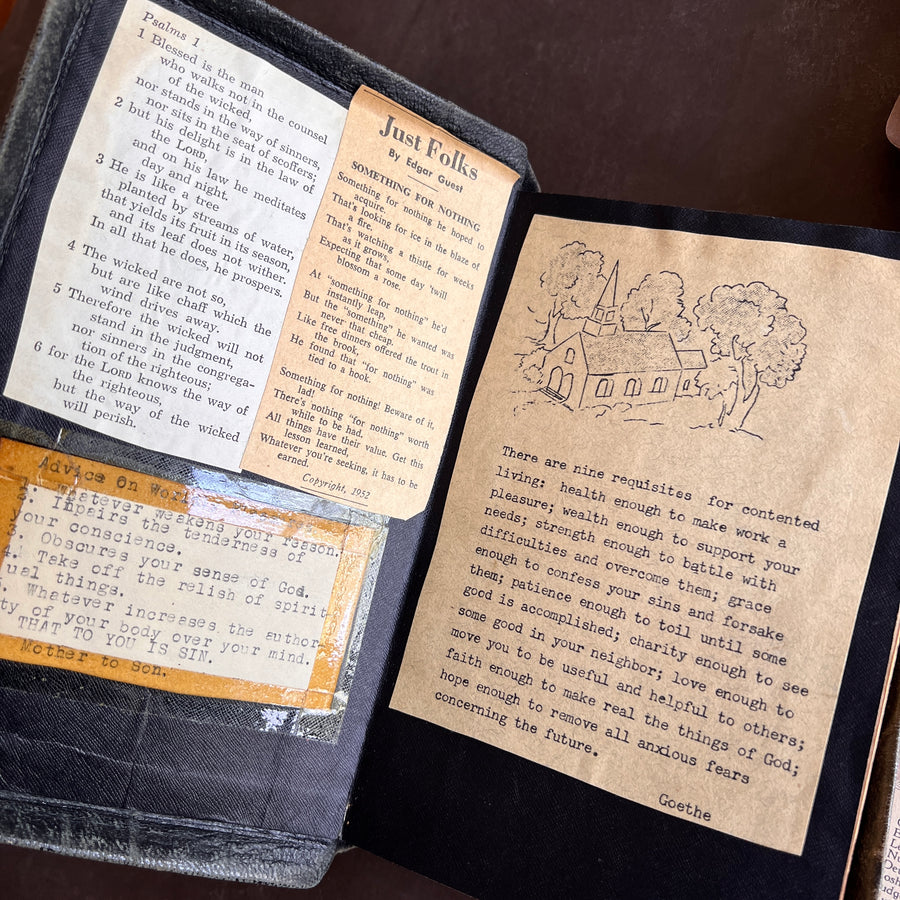 Psalms 1
1 Blessed is the man
who walks not in the counsel
of the wicked,
nor stands in the way of sinners,
nor sits in the seat of scoffers;
2 but his delight is in the law of
the LORD,
and on his law he meditates
day and night.
3 He is like a tree
planted by streams of water,
that yields its fruit in its season,
and its leaf does not wither.
In all that he does, he prospers.
4 The wicked are not so,
but are like chaff which the
wind drives away.
5 Therefore the wicked will not
stand in the judgment,
nor sinners in the congrega-
tion of the righteous;
6 for the LORD knows the way of
the righteous,
but the way of the wicked
will perish.
Just Folks
By Edgar Guest
SOMETHING FOR NOTHING
Something for nothing he hoped to
acquire.
That's looking for ice in the blaze of
a fire.
That's watching a thistle for weeks
as it grows,
Expecting that some day 'twill
blossom a rose.
At "something for nothing" he'd
instantly leap,
But the "something" he wanted was
never that cheap.
Like free dinners offered the trout in
the brook,
He found that "for nothing" was
tied to a hook.
Something for nothing! Beware of it,
lad!
There's nothing "for nothing" worth
while to be had.
All things have their value. Get this
lesson learned,
Whatever you're seeking, it has to be
earned.
Copyright, 1952
Advice On
Whatever weakens your reason.
2. Impairs the tenderness of
your conscience.
3. Obscures your sense of God.
4. Take off the relish of spirit
ual things.
5. Whatever increases the author
ty of your body over your mind.
THAT TO YOU IS SIN.
Mother to Son.
There are nine requisites for contented
living: health enough to make work a
pleasure; wealth enough to support your
needs; strength enough to battle with
difficulties and overcome them; grace
enough to confess your sins and forsake
them; patience enough to toil until some
good is accomplished; charity enough to see
some good in your neighbor; love enough to
move you to be useful and helpful to others;
faith enough to make real the things of God;
hope enough to remove all anxious fears
concerning the future.
Goethe